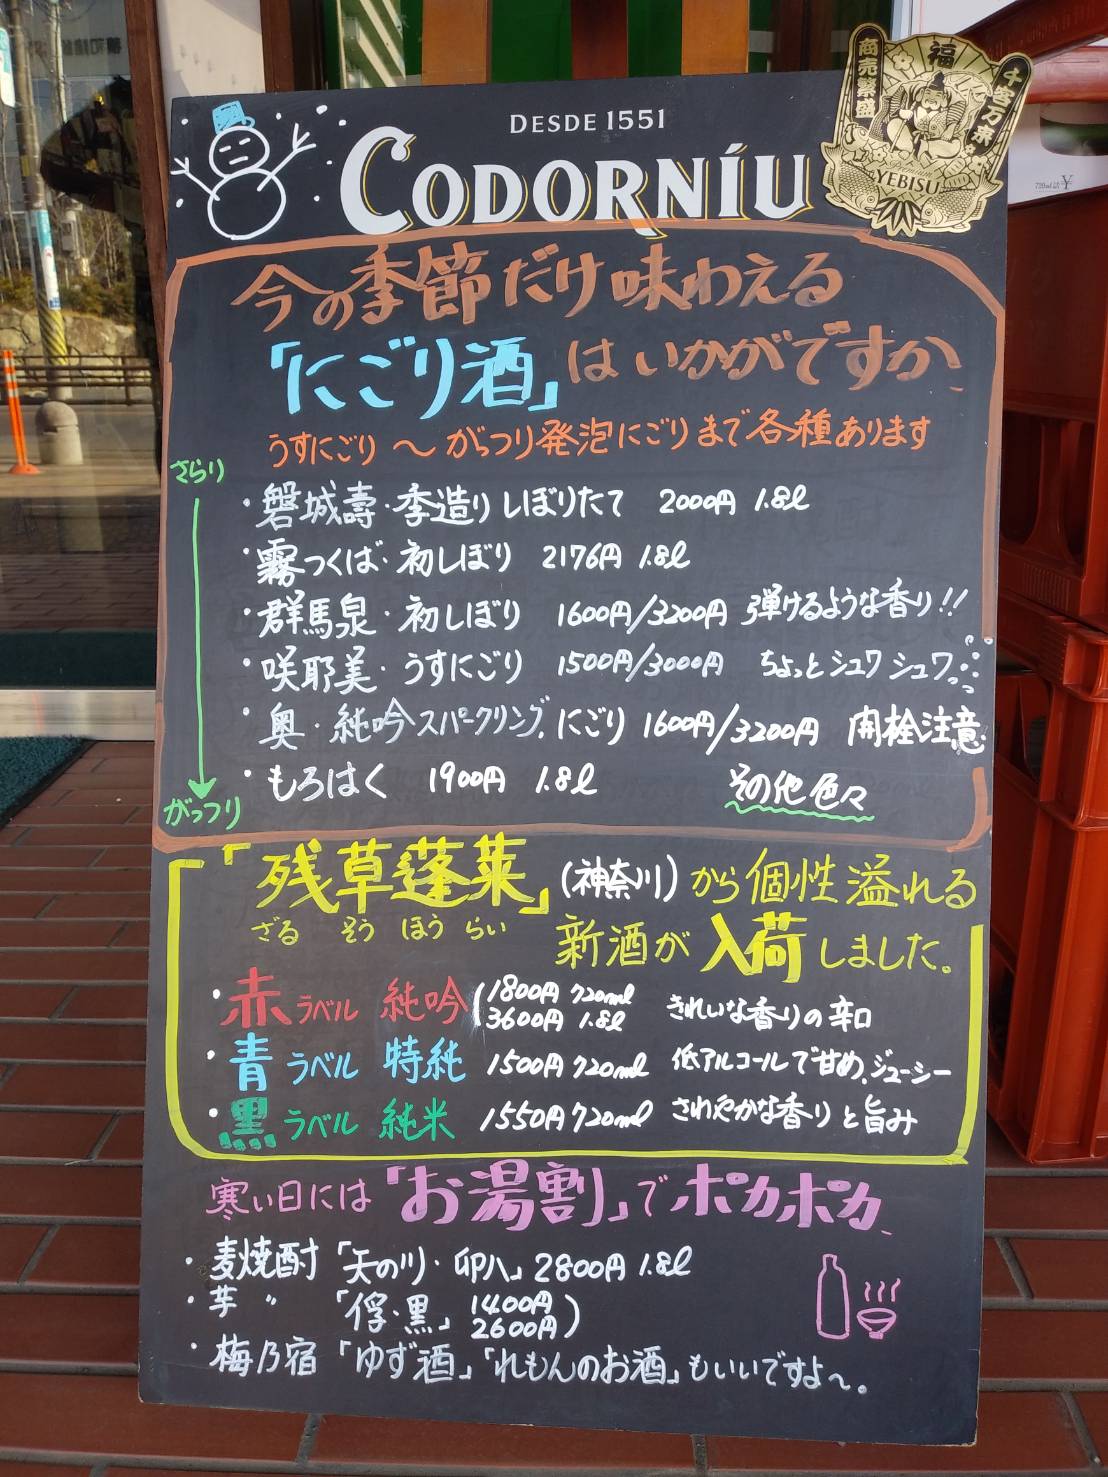 DESDE 1551
CODORNÍU
商売繁盛
福
千客万来
YEBISU
720ml ¥
今の季節だけ味わえる
「にごり酒」はいかがですか、
うすにごり 〜 がっつり発泡にごりまで各種あります
さらり
・磐城壽・季造りしぼりたて 2000円 1.8l
・霧つくば・初しぼり 2176円 1.8l
・群馬泉・初しぼり 1600円/3200円 弾けるような香り!!
・咲耶美・うすにごり 1500円/3000円 ちょっとシュワシュワ
・奥・純吟スパークリング、にごり 1600円/3200円 開栓注意
・もろはく 1900円 1.8l その他色々
がっつり
「残草蓬莱」(神奈川)から個性溢れる
ざる そう ほう らい
新酒が入荷しました。
・赤ラベル 純吟 (1800円 720ml きれいな香りの辛口
3600円 1.8l
・青ラベル 特純 1500円 720ml 低アルコールで甘め、ジューシー
・黒ラベル 純米 1550円 720ml さわやかな香りと旨み
寒い日には「お湯割」でポカポカ、
・麦焼酎「天の川・卯八」2800円 1.8l
・芋 〃 「俘・黒」 1400円
2600円)
・梅乃宿「ゆず酒」「れもんのお酒」もいいですよ〜。